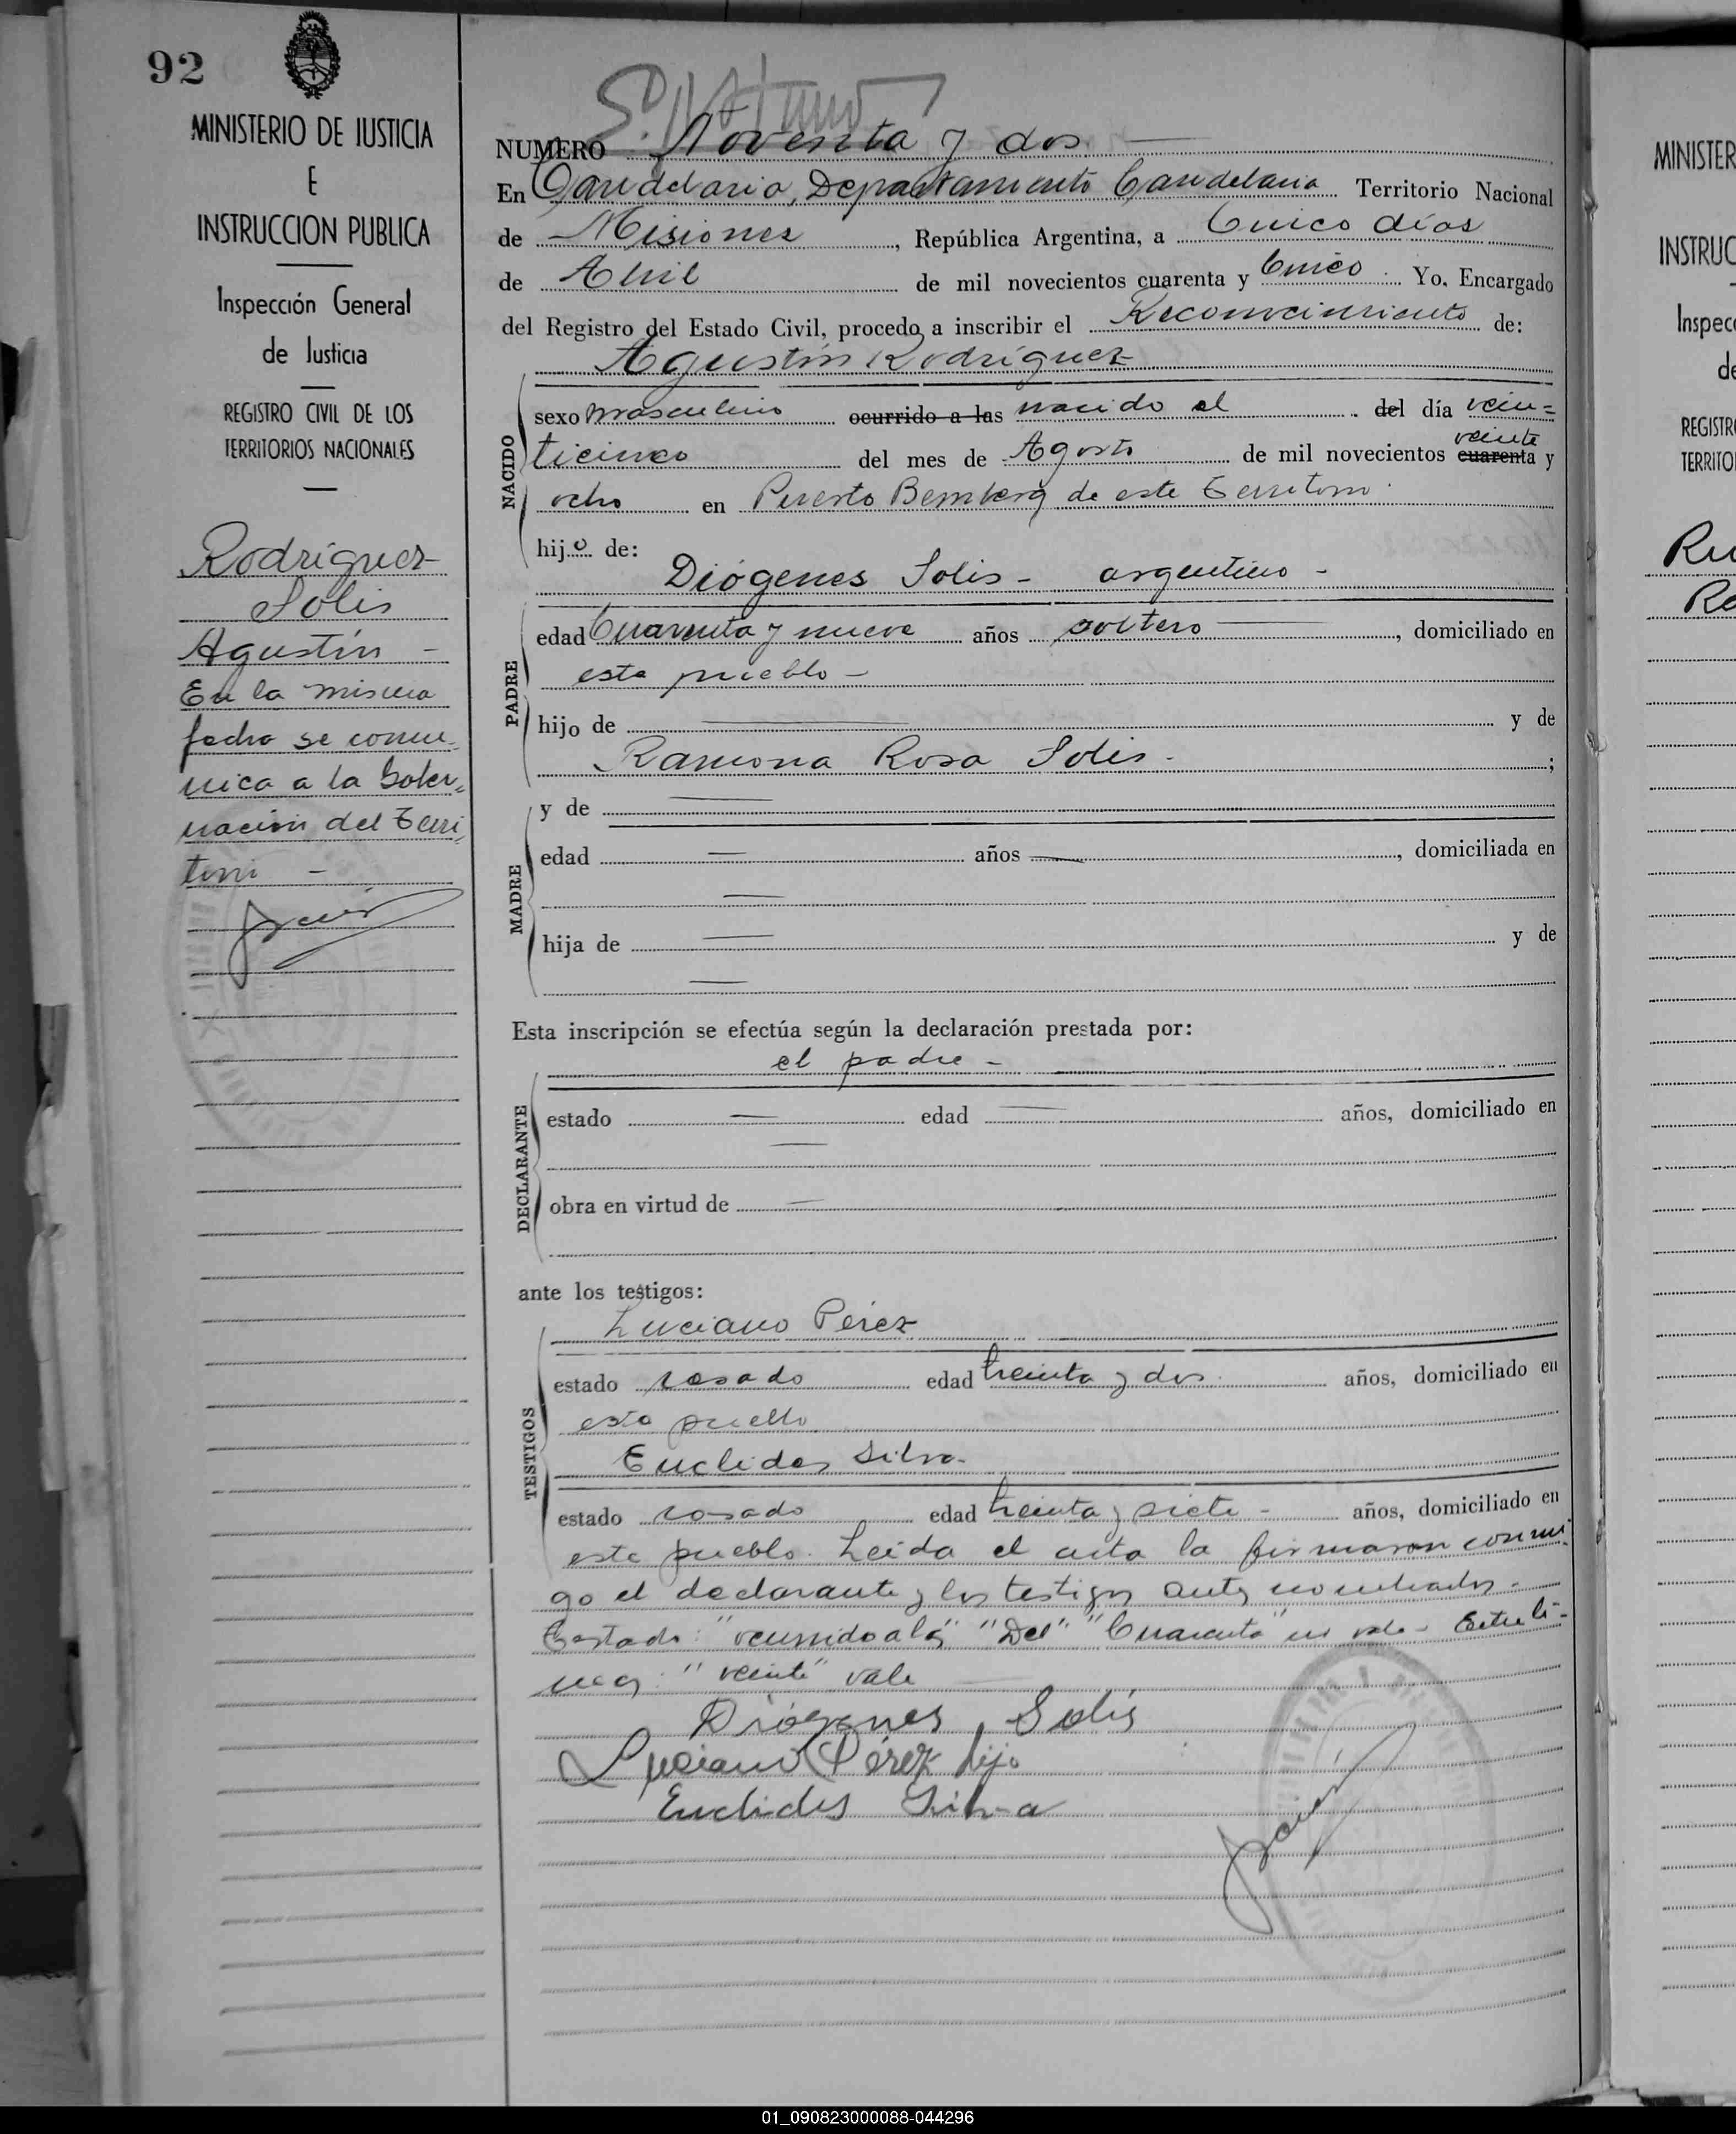 92
MINISTERIO DE JUSTICIA
E
INSTRUCCION PUBLICA
Inspección General
de Justicia
REGISTRO CIVIL DE LOS
TERRITORIOS NACIONALES
Rodríguez
Solis
Agustín -
En la misma
fecha se comu-
nica a la Gober-
nación del Terri
torio -
NUMERO Noventa y dos
En Candelaria, Departamento Candelaria Territorio Nacional
de Misiones, República Argentina, a Cinco días
de Abril de mil novecientos cuarenta y Cinco. Yo, Encargado
del Registro del Estado Civil, procedo a inscribir el Reconocimiento de:
Agustín Rodríguez
NACIDO
sexo masculino ocurrido a las nacido el del día vein=
veinte
ticinco del mes de Agosto de mil novecientos cuarenta y
ocho en Puerto Bemberg de este Territorio.
hijo de:
Diógenes Solis - argentino -
PADRE
edad Cuarenta y nueve años soltero, domiciliado en
este pueblo -
hijo de y de
Ramona Rosa Solis - ;
y de
MADRE
edad años, domiciliada en
hija de y de
Esta inscripción se efectúa según la declaración prestada por:
el padre -
DECLARANTE
estado edad años, domiciliado en
obra en virtud de
ante los testigos:
Luciano Pérez
TESTIGOS
estado casado edad treinta y dos años, domiciliado en
este pueblo
Euclides Silva -
estado casado edad treinta y siete - años, domiciliado en
este pueblo. Leída el acta la firmaron conmi
go el declarante y los testigos antes nombrados -
Testado: "ocurrido a las" "Del" "Cuarenta" no vale - Entreli-
neas: "veinte" vale
Diógenes Solís
Luciano Pérez hijo
Euclides Silva
MINISTER
INSTRUC
Inspec
de
REGISTR
TERRITO
01_090823000088-044296